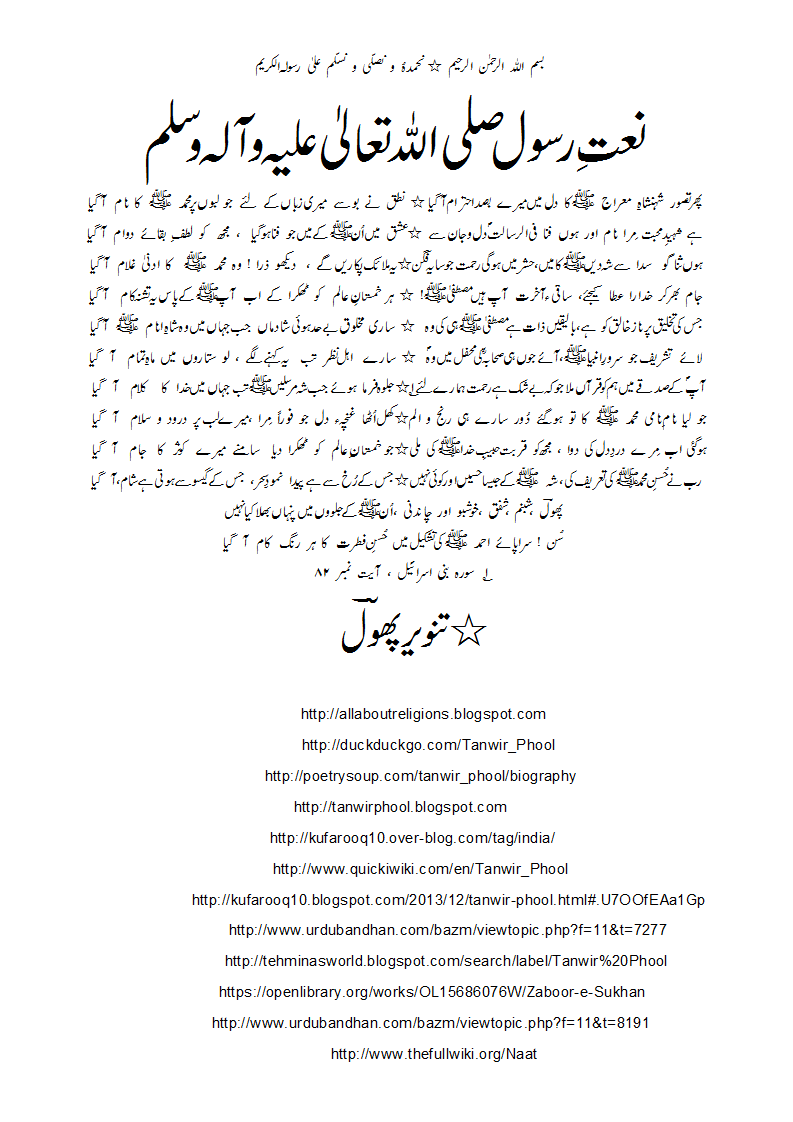 بسم اللہ الرحمٰن الرحیم ☆ نحمدہٗ و نصلّی و نسلّم علیٰ رسولہِ الکریم
نعتِ رسول صلی اللہ تعالیٰ علیہ وآلہ وسلم
پھر تصور شہنشاہِ معراج ﷺ کا دل میں میرے بصد احترام آ گیا ☆ نطق نے بوسے میری زباں کے لئے جو لبوں پر محمد ﷺ کا نام آ گیا
ہے شہیدِ محبت مِرا نام اور ہوں فنا فی الرسالت دل و جان سے ☆ عشق میں اُن ﷺ کے میں جو فنا ہو گیا ، مجھ کو لطفِ بقائے دوام آ گیا
ہوں ثنا گو سدا سے شہِ دیں ﷺ کا میں، حشر میں ہوگی رحمت جو سایہ فگن ☆ یہ ملائک پکاریں گے ، دیکھو ذرا ! وہ محمد ﷺ کا ادنیٰ غلام آ گیا
جام بھر کر خدارا عطا کیجئے، ساقیِ آخرت آپ ہیں مصطفیٰ ﷺ ! ☆ ہر خمستانِ عالم کو ٹھکرا کے اب آپ ﷺ کے پاس یہ تشنہ کام آ گیا
جس کی تخلیق پر ناز خالق کو ہے، بالیقیں ذات ہے مصطفیٰ ﷺ ہی کی وہ ☆ ساری مخلوق بے حد ہوئی شادماں جب جہاں میں وہ شاہِ انام ﷺ آ گیا
لائے تشریف جو سرورِ انبیا ﷺ ، آئے جوں ہی صحابہؓ کی محفل میں وہؐ ☆ سارے اہلِ نظر تب یہ کہنے لگے ، لو ستاروں میں ماہِ تمام آ گیا
آپؐ کے صدقے میں ہم کو قرآں ملا جو کہ بے شک ہے رحمت ہمارے لئے ؎۱ ☆ جلوہ فرما ہوئے جب شہِ مرسلیں ﷺ تب جہاں میں خدا کا کلام آ گیا
جو لیا نامِ نامی محمد ﷺ کا تو ہو گئے دُور سارے ہی رنج و الم ☆ کھل اُٹھا غنچہء دل جو فوراً مِرا ، میرے لب پر درود و سلام آ گیا
ہو گئی اب مِرے دردِ دل کی دوا ، مجھ کو قربت حبیبِ خدا ﷺ کی ملی ☆ جو خمستانِ عالم کو ٹھکرا دیا سامنے میرے کوثر کا جام آ گیا
رب نے حُسنِ محمد ﷺ کی تعریف کی، شہ ﷺ کے جیسا حسیں اور کوئی نہیں ☆ جس کے رُخ سے ہے پیدا نمودِ سحر، جس کے گیسو سے ہوتی ہے شام، آ گیا
پھولؔ ، شبنم ، شفق ، خوشبو اور چاندنی ، اُن ﷺ کے جلووں میں پنہاں بھلا کیا نہیں
سُن ! سراپائے احمد ﷺ کی تشکیل میں حُسنِ فطرت کا ہر رنگ کام آ گیا
؎۱ سورہ بنی اسرائیل ، آیت نمبر ۸۲
☆ تنویر پھولؔ
http://allaboutreligions.blogspot.com
http://duckduckgo.com/Tanwir_Phool
http://poetrysoup.com/tanwir_phool/biography
http://tanwirphool.blogspot.com
http://kufarooq10.over-blog.com/tag/india/
http://www.quickiwiki.com/en/Tanwir_Phool
http://kufarooq10.blogspot.com/2013/12/tanwir-phool.html#.U7OOfEAa1Gp
http://www.urdubandhan.com/bazm/viewtopic.php?f=11&t=7277
http://tehminasworld.blogspot.com/search/label/Tanwir%20Phool
https://openlibrary.org/works/OL15686076W/Zaboor-e-Sukhan
http://www.urdubandhan.com/bazm/viewtopic.php?f=11&t=8191
http://www.thefullwiki.org/Naat